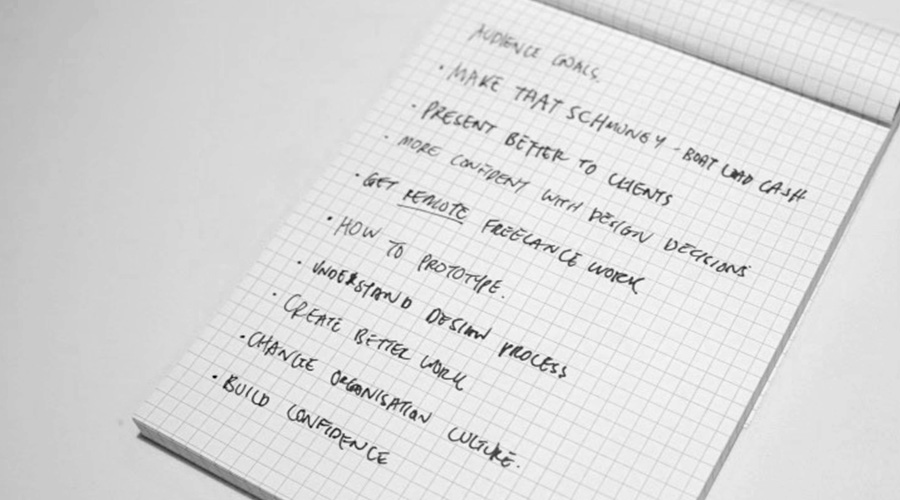 AUDIENCE GOALS.
· MAKE THAT SCHMONEY - BOAT LOAD CASH
· PRESENT BETTER TO CLIENTS
· MORE CONFIDENT WITH DESIGN DECISIONS
· GET REMOTE FREELANCE WORK
· HOW TO PROTOTYPE.
· UNDERSTAND DESIGN PROCESS
· CREATE BETTER WORK
· CHANGE ORGANISATION CULTURE.
· BUILD CONFIDENCE